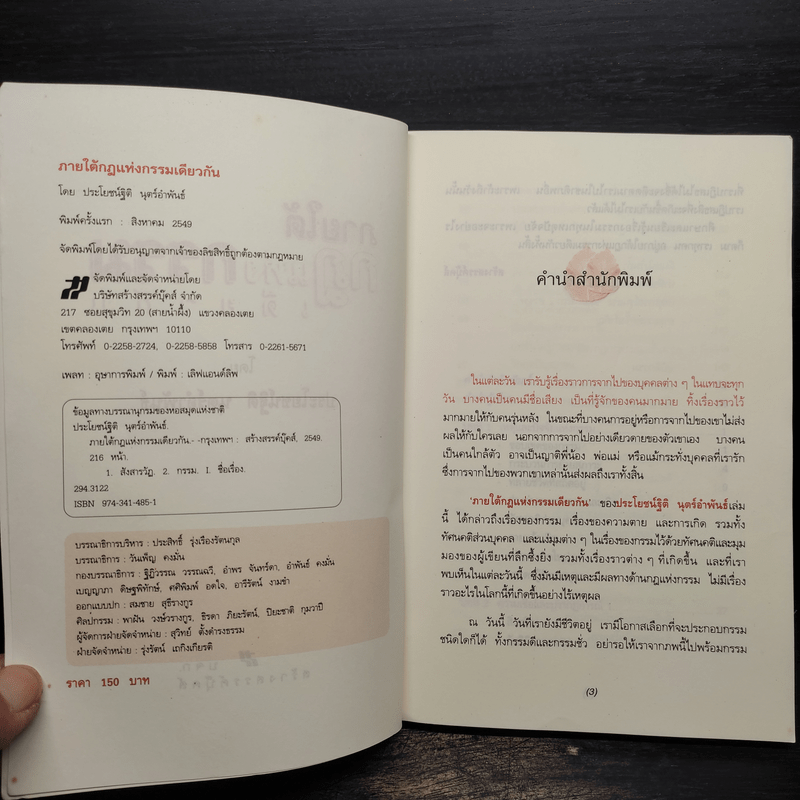 ภายใต้กฎแห่งกรรมเดียวกัน
โดย ประโยชน์ฐิติ นุตร์อำพันธ์
พิมพ์ครั้งแรก : สิงหาคม 2549
จัดพิมพ์โดยได้รับอนุญาตจากเจ้าของลิขสิทธิ์ถูกต้องตามกฎหมาย
จัดพิมพ์และจัดจำหน่ายโดย
บริษัทสร้างสรรค์บุ๊คส์ จำกัด
217 ซอยสุขุมวิท 20 (สายน้ำผึ้ง) แขวงคลองเตย
เขตคลองเตย กรุงเทพฯ 10110
โทรศัพท์ 0-2258-2724, 0-2258-5858 โทรสาร 0-2261-5671
เพลท : อุษาการพิมพ์ / พิมพ์ : เลิฟแอนด์ลิพ
ข้อมูลทางบรรณานุกรมของหอสมุดแห่งชาติ
ประโยชน์ฐิติ นุตร์อำพันธ์.
ภายใต้กฎแห่งกรรมเดียวกัน.- -กรุงเทพฯ : สร้างสรรค์บุ๊คส์, 2549.
216 หน้า.
1. สังสารวัฏ. 2. กรรม. I. ชื่อเรื่อง.
294.3122
ISBN 974-341-485-1
บรรณาธิการบริหาร : ประสิทธิ์ รุ่งเรืองรัตนกุล
บรรณาธิการ : วันเพ็ญ คงมั่น
กองบรรณาธิการ : ฐิฏิวรรณ วรรณฉวี, อำพร จันทร์ดา, อำพันธ์ คงมั่น
เบญญาภา ดิษฐพิทักษ์, ศศิพิมพ์ อดใจ, อารีรัตน์ งามขำ
ออกแบบปก : สมชาย สุธีรางกูร
ศิลปกรรม : พาฝัน วงษ์วรางกูร, ธิรดา ภิยะรัตน์, ปิยะชาติ กุมวาปี
ผู้จัดการฝ่ายจัดจำหน่าย : สุวิทย์ ตั้งดำรงธรรม
ฝ่ายจัดจำหน่าย : รุ่งรัตน์ เถกิงเกียรติ
ราคา 150 บาท
คำนำสำนักพิมพ์
ในแต่ละวัน เรารับรู้เรื่องราวการจากไปของบุคคลต่าง ๆ ในแทบจะทุก
วัน บางคนเป็นคนมีชื่อเสียง เป็นที่รู้จักของคนมากมาย ทิ้งเรื่องราวไว้
มากมายให้กับคนรุ่นหลัง ในขณะที่บางคนการอยู่หรือการจากไปของเขาไม่ส่ง
ผลให้กับใครเลย นอกจากการจากไปอย่างเดียวดายของตัวเขาเอง บางคน
เป็นคนใกล้ตัว อาจเป็นญาติพี่น้อง พ่อแม่ หรือแม้กระทั่งบุคคลที่เรารัก
ซึ่งการจากไปของพวกเขาเหล่านั้นส่งผลถึงเราทั้งสิ้น
'ภายใต้กฎแห่งกรรมเดียวกัน' ของประโยชน์ฐิติ นุตร์อำพันธ์เล่ม
นี้ ได้กล่าวถึงเรื่องของกรรม เรื่องของความตาย และการเกิด รวมทั้ง
ทัศนคติส่วนบุคคล และแง่มุมต่าง ๆ ในเรื่องของกรรมไว้ด้วยทัศนคติและมุม
มองของผู้เขียนที่ลึกซึ้งยิ่ง รวมทั้งเรื่องราวต่าง ๆ ที่เกิดขึ้น และที่เรา
พบเห็นในแต่ละวันนี้ ซึ่งมันมีเหตุและมีผลทางด้านกฎแห่งกรรม ไม่มีเรื่อง
ราวอะไรในโลกนี้ที่เกิดขึ้นอย่างไร้เหตุผล
ณ วันนี้ วันที่เรายังมีชีวิตอยู่ เรามีโอกาสเลือกที่จะประกอบกรรม
ชนิดใดก็ได้ ทั้งกรรมดีและกรรมชั่ว อย่ารอให้เราจากภพนี้ไปพร้อมกรรม
(3)